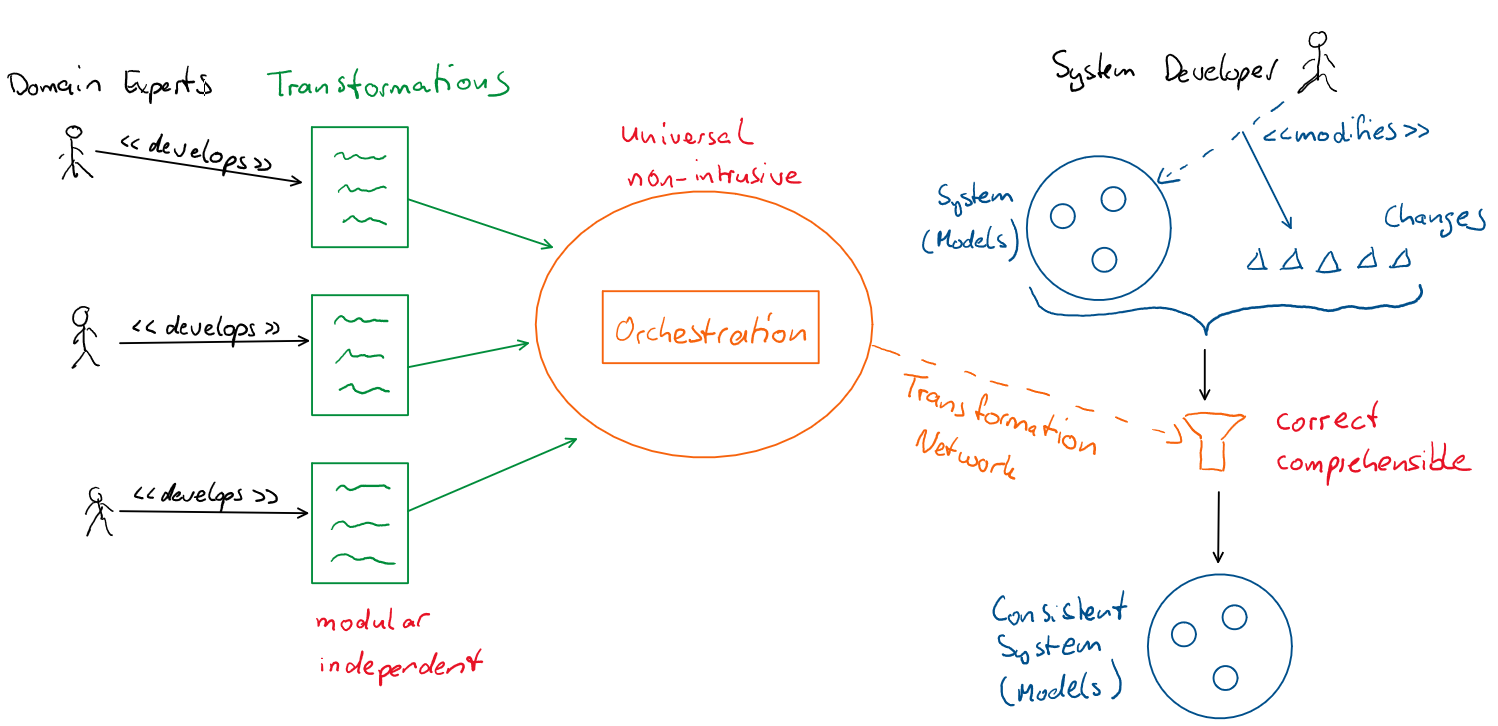 Domain Experts
Transformations
<< develops >>
<< develops >>
<< develops >>
modular
independent
universal
non-intrusive
Orchestration
Transformation
Network
System Developer
<<modifies>>
System
(Models)
Changes
correct
comprehensible
Consistent
System
(Models)